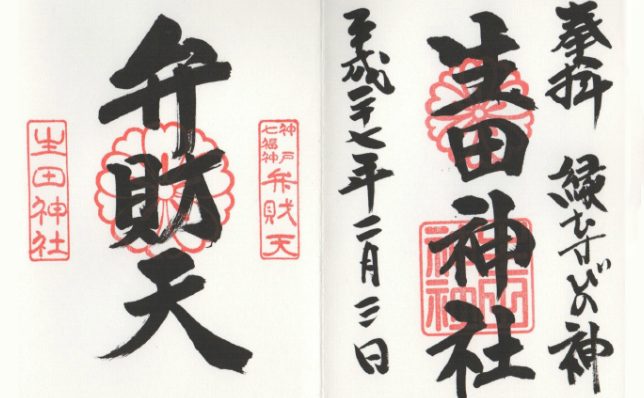 奉拝 縁むすびの神
生田神社
平成二十七年二月三日
神戸
七福神
弁財天
弁財天
生田神社